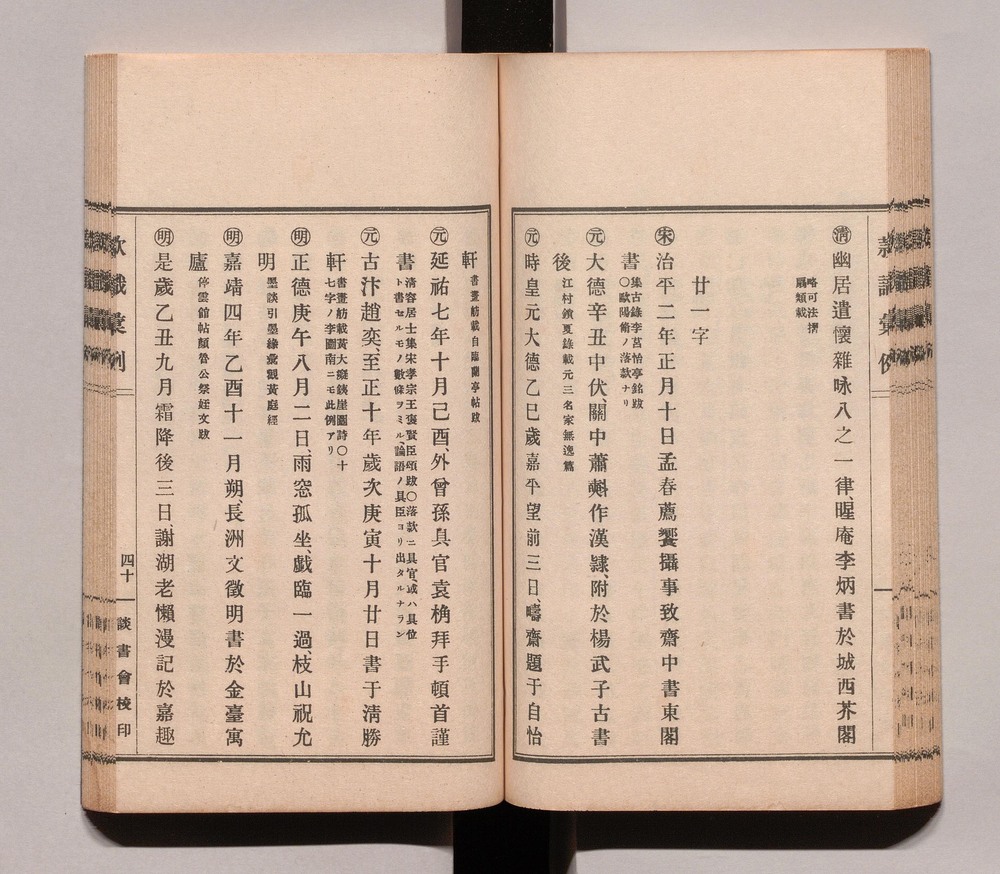 清 幽居遣懷雜咏八之一律、暒庵李炳書於城西芥閣
略可法摺
扇類載
廿一字
宋 治平二年正月十日孟春薦饗攝事致齋中書東閣
書
集古錄李莒怡亭銘跋
〇歐陽脩ノ落款ナリ
元 大德辛丑中伏、關中蕭㪺作漢隷、附於楊武子古書
後
江村銷夏錄載元三名家無逸篇
元 時皇元大德乙巳歲嘉平望前三日、疇齋題于自怡
軒
書畫舫載自臨蘭亭帖跋
元 延祐七年十月己酉、外曾孫具官袁桷拜手頓首謹
書
淸容居士集宋孝宗王褒賢臣頌跋〇落款ニ具官、或ハ具位
ト書セルモノ數條ヲミル、論語ノ具臣ヨリ出タルナラン
元 古汴趙奕、至正十年歲次庚寅十月廿日書于淸勝
軒
書畫舫載黃大癡鐵崖圖詩〇十
七字ノ李圖南ニモ此例アリ
明 正德庚午八月二日、雨窓孤坐、戲臨一過、枝山祝允
明
墨談引墨緣彙觀黃庭經
明 嘉靖四年乙酉十一月朔、長洲文徵明書於金臺寓
廬
停雲館帖顏魯公祭姪文跋
明 是歲乙丑九月霜降後三日、謝湖老懶漫記於嘉趣
款識彙例
四十
談書會校印